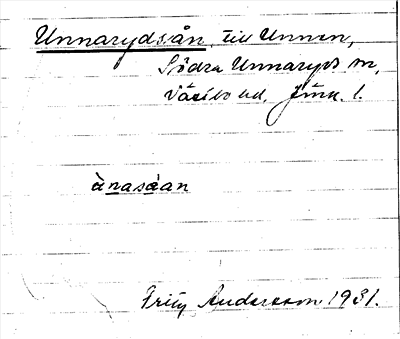 Unnarydsån, till Unnen,
Södra Unnaryds sn,
Västbo hd. Jönk. l.
ànasáan
Fritz Andersson 1931.